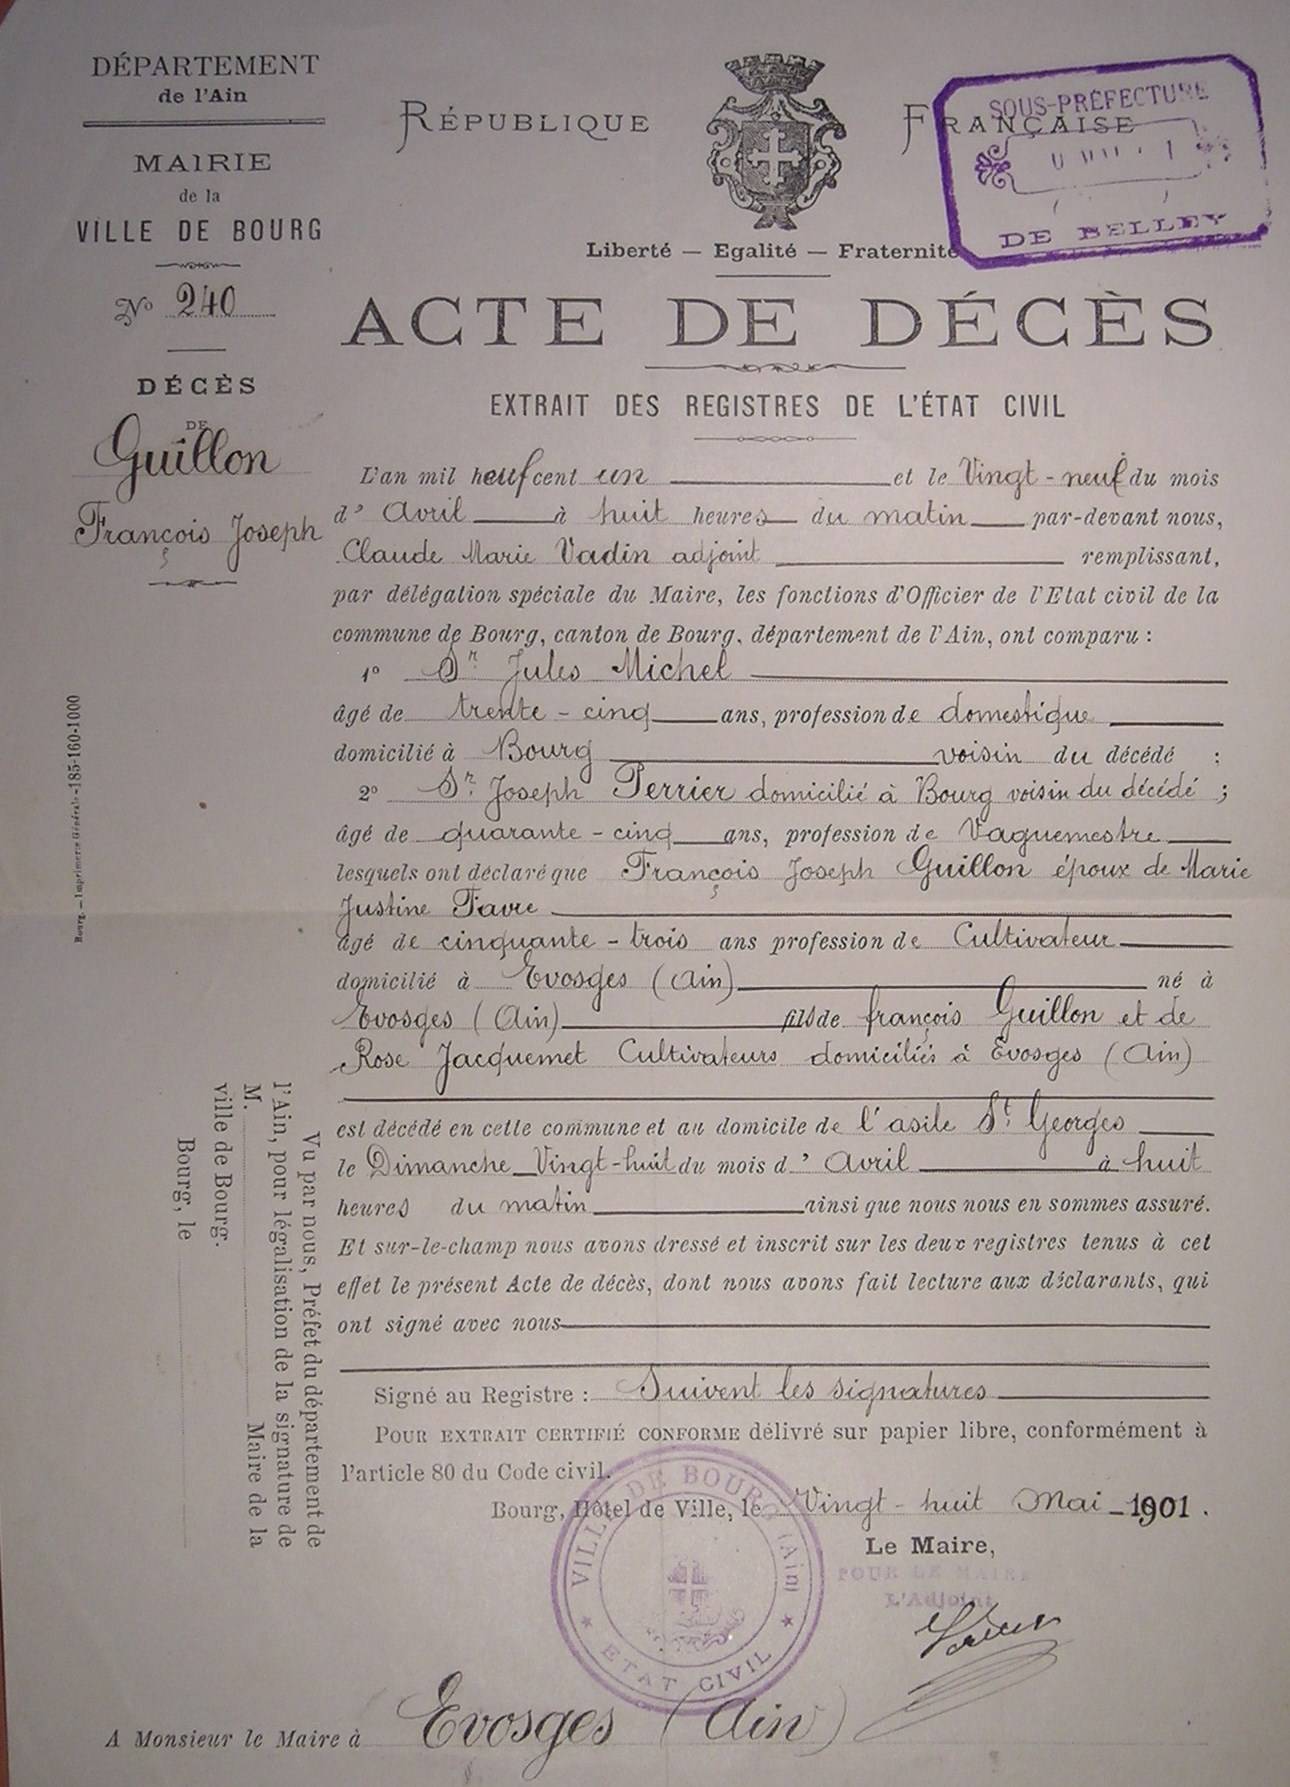 DÉPARTEMENT
de l'Ain
MAIRIE
de la
VILLE DE BOURG
N° 240
DÉCÈS
DE
Guillon
François Joseph
RÉPUBLIQUE FRANÇAISE
Liberté — Egalité — Fraternité
SOUS-PRÉFECTURE
DE BELLEY
ACTE DE DÉCÈS
EXTRAIT DES REGISTRES DE L'ÉTAT CIVIL
L'an mil neuf cent un et le Vingt-neuf du mois
d'Avril à huit heures du matin par-devant nous,
Claude Marie Vadin adjoint remplissant,
par délégation spéciale du Maire, les fonctions d'Officier de l'Etat civil de la
commune de Bourg, canton de Bourg, département de l'Ain, ont comparu :
1° Sr. Jules Michel
âgé de trente-cinq ans, profession de domestique
domicilié à Bourg voisin du décédé ;
2° Sr. Joseph Perrier domicilié à Bourg voisin du décédé ;
âgé de quarante-cinq ans, profession de Vaguemestre
lesquels ont déclaré que François Joseph Guillon époux de Marie
Justine Favre
âgé de cinquante-trois ans profession de Cultivateur
domicilié à Evosges (Ain) né à
Evosges (Ain) fils de françois Guillon et de
Rose Jacquemet Cultivateurs domiciliés à Evosges (Ain)
est décédé en cette commune et au domicile de l'asile St. Georges
le Dimanche Vingt-huit du mois d'Avril à huit
heures du matin ainsi que nous nous en sommes assuré.
Et sur-le-champ nous avons dressé et inscrit sur les deux registres tenus à cet
effet le présent Acte de décès, dont nous avons fait lecture aux déclarants, qui
ont signé avec nous
Signé au Registre : Suivent les signatures
POUR EXTRAIT CERTIFIÉ CONFORME délivré sur papier libre, conformément à
l'article 80 du Code civil.
Bourg, Hôtel de Ville, le Vingt-huit Mai 1901.
Le Maire,
POUR LE MAIRE
L'Adjoint
VILLE DE BOURG (Ain)
ETAT CIVIL
A Monsieur le Maire à Evosges (Ain)
Bourg. — Imprimerie Générale -185-160-1000
Vu par nous, Préfet du département de
l'Ain, pour légalisation de la signature de
M. Maire de la
ville de Bourg.
Bourg, le